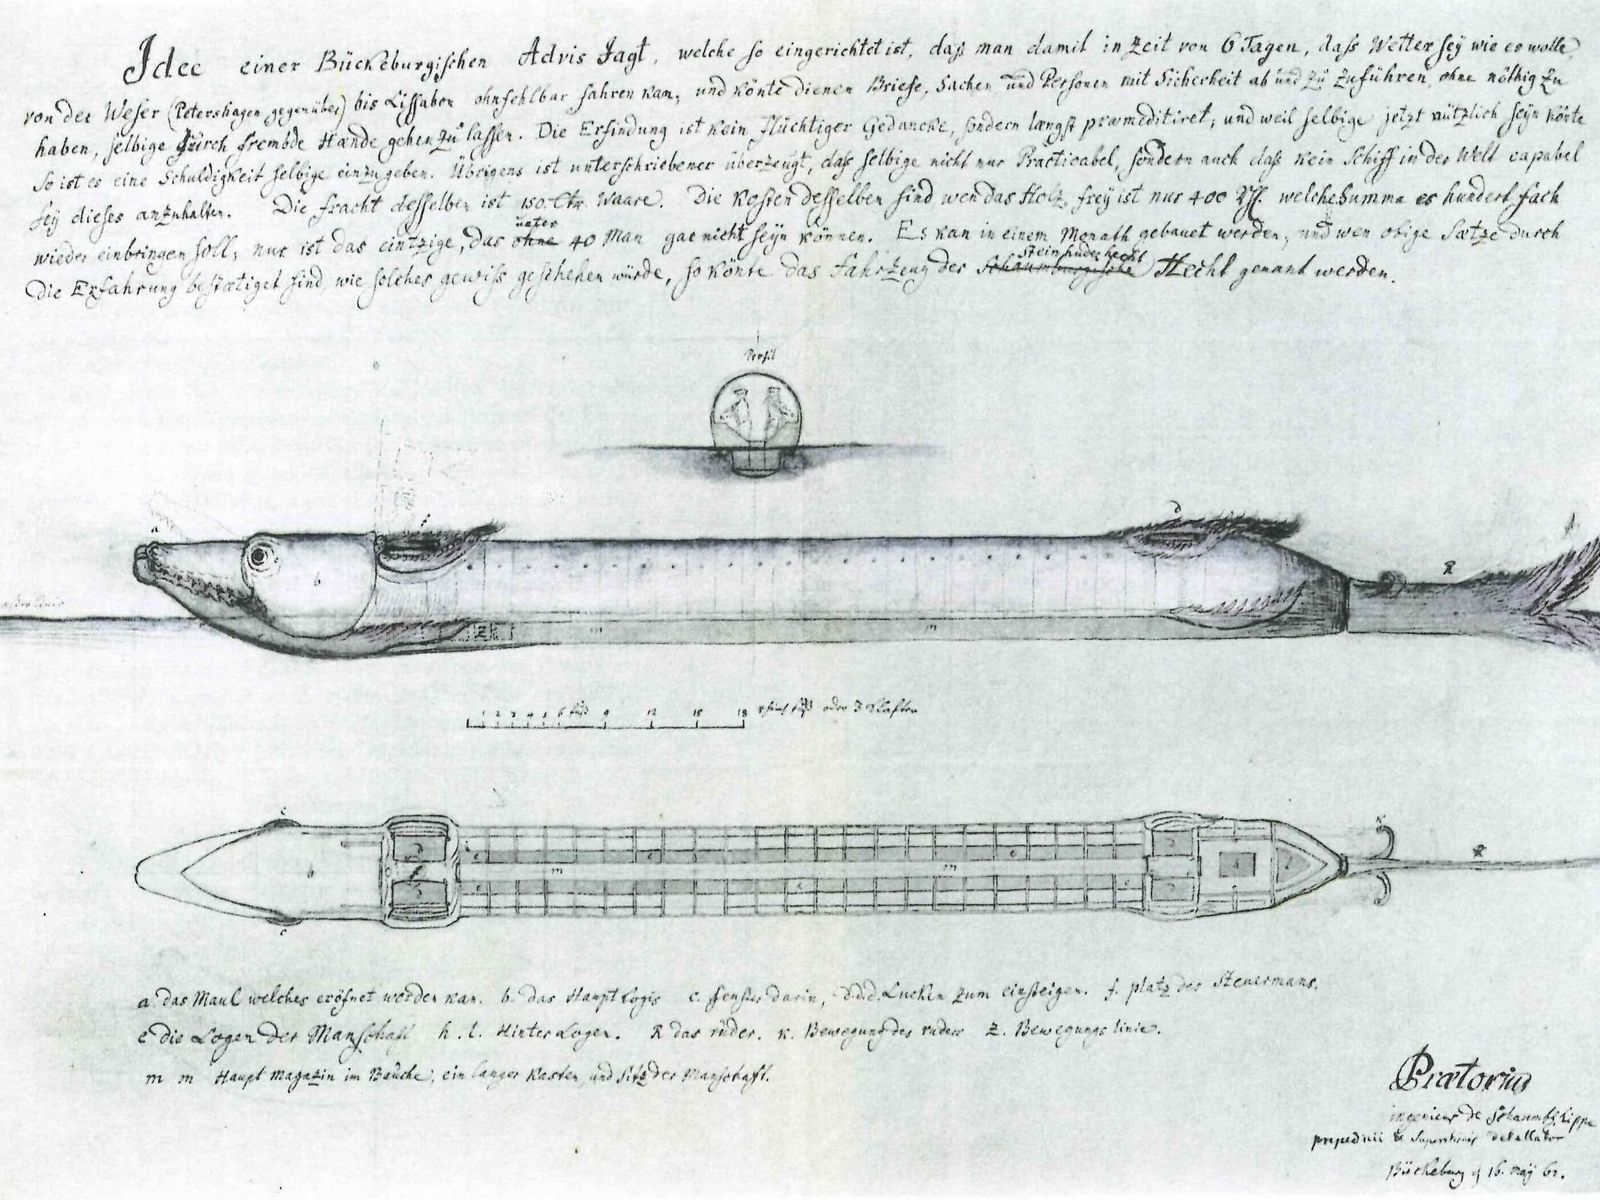 Idee einer Bückeburgischen Advis Jagt, welche so eingerichtet ist, daß man damit in Zeit von 6 Tagen, daß Wetter seÿ wie es wolle,
von der Weser (Petershagen gegenüber) bis Lissabon ohnfehlbar fahren kan, und könte dienen Briefe, Sachen und Personen mit Sicherheit ab und zu zuführen, ohne nöthig zu
haben, selbige durch frembde Hænde gehen zu lassen. Die Erfindung ist kein flüchtiger Gedancke, sondern længst præmeditiret, und weil selbige jetzt nützlich seÿn könte
so ist es eine Schuldigkeit selbige einzugeben. Übrigens ist unterschriebener überzeugt, daß selbige nicht nur Practicabel, sondern auch daß kein Schiff in der Welt capabel
seÿ dieses anzuhalten. Die fracht desselben ist 150 Ctr. Waare. Die Kosten desselben sind wen das Holz freÿ ist nur 400 welche Summa es hundert fach
wieder einbringen soll, nur ist das eintzige, das ohne unter 40 Man gar nicht seÿn können. Es kan in einem Monath gebauet werden, und wen obige Sætze durch
die Erfahrung bestætiget sind, wie solches gewiß geschehen würde, so könte das Fahrzeug der Schaumburgische Steinhuder hecht Hecht genant werden.
Profil
a
b
f
d
R
Z
m
m
1 2 3 4 5 6 fus 9 12 15 18 oder 3 Klafter
c
b
c
m
m
K
R
a das Maul welches eröfnet werden kan. b. das Haupt Logis c. ffenster darin, d.d.d. Lucken zum einsteigen. f. platz des Steuermans.
e die Logen der Manschafft h. l. Hinter Logen. R das ruder. K. Bewegung des ruders Z. Bewegungs linie.
m m Haupt magazin im Bauche, ein langer Kasten und sitz der Manschafft.
Prætorius
ingenieur de Schaumb. Lippe
Bückeburg d 16. maÿ 62.